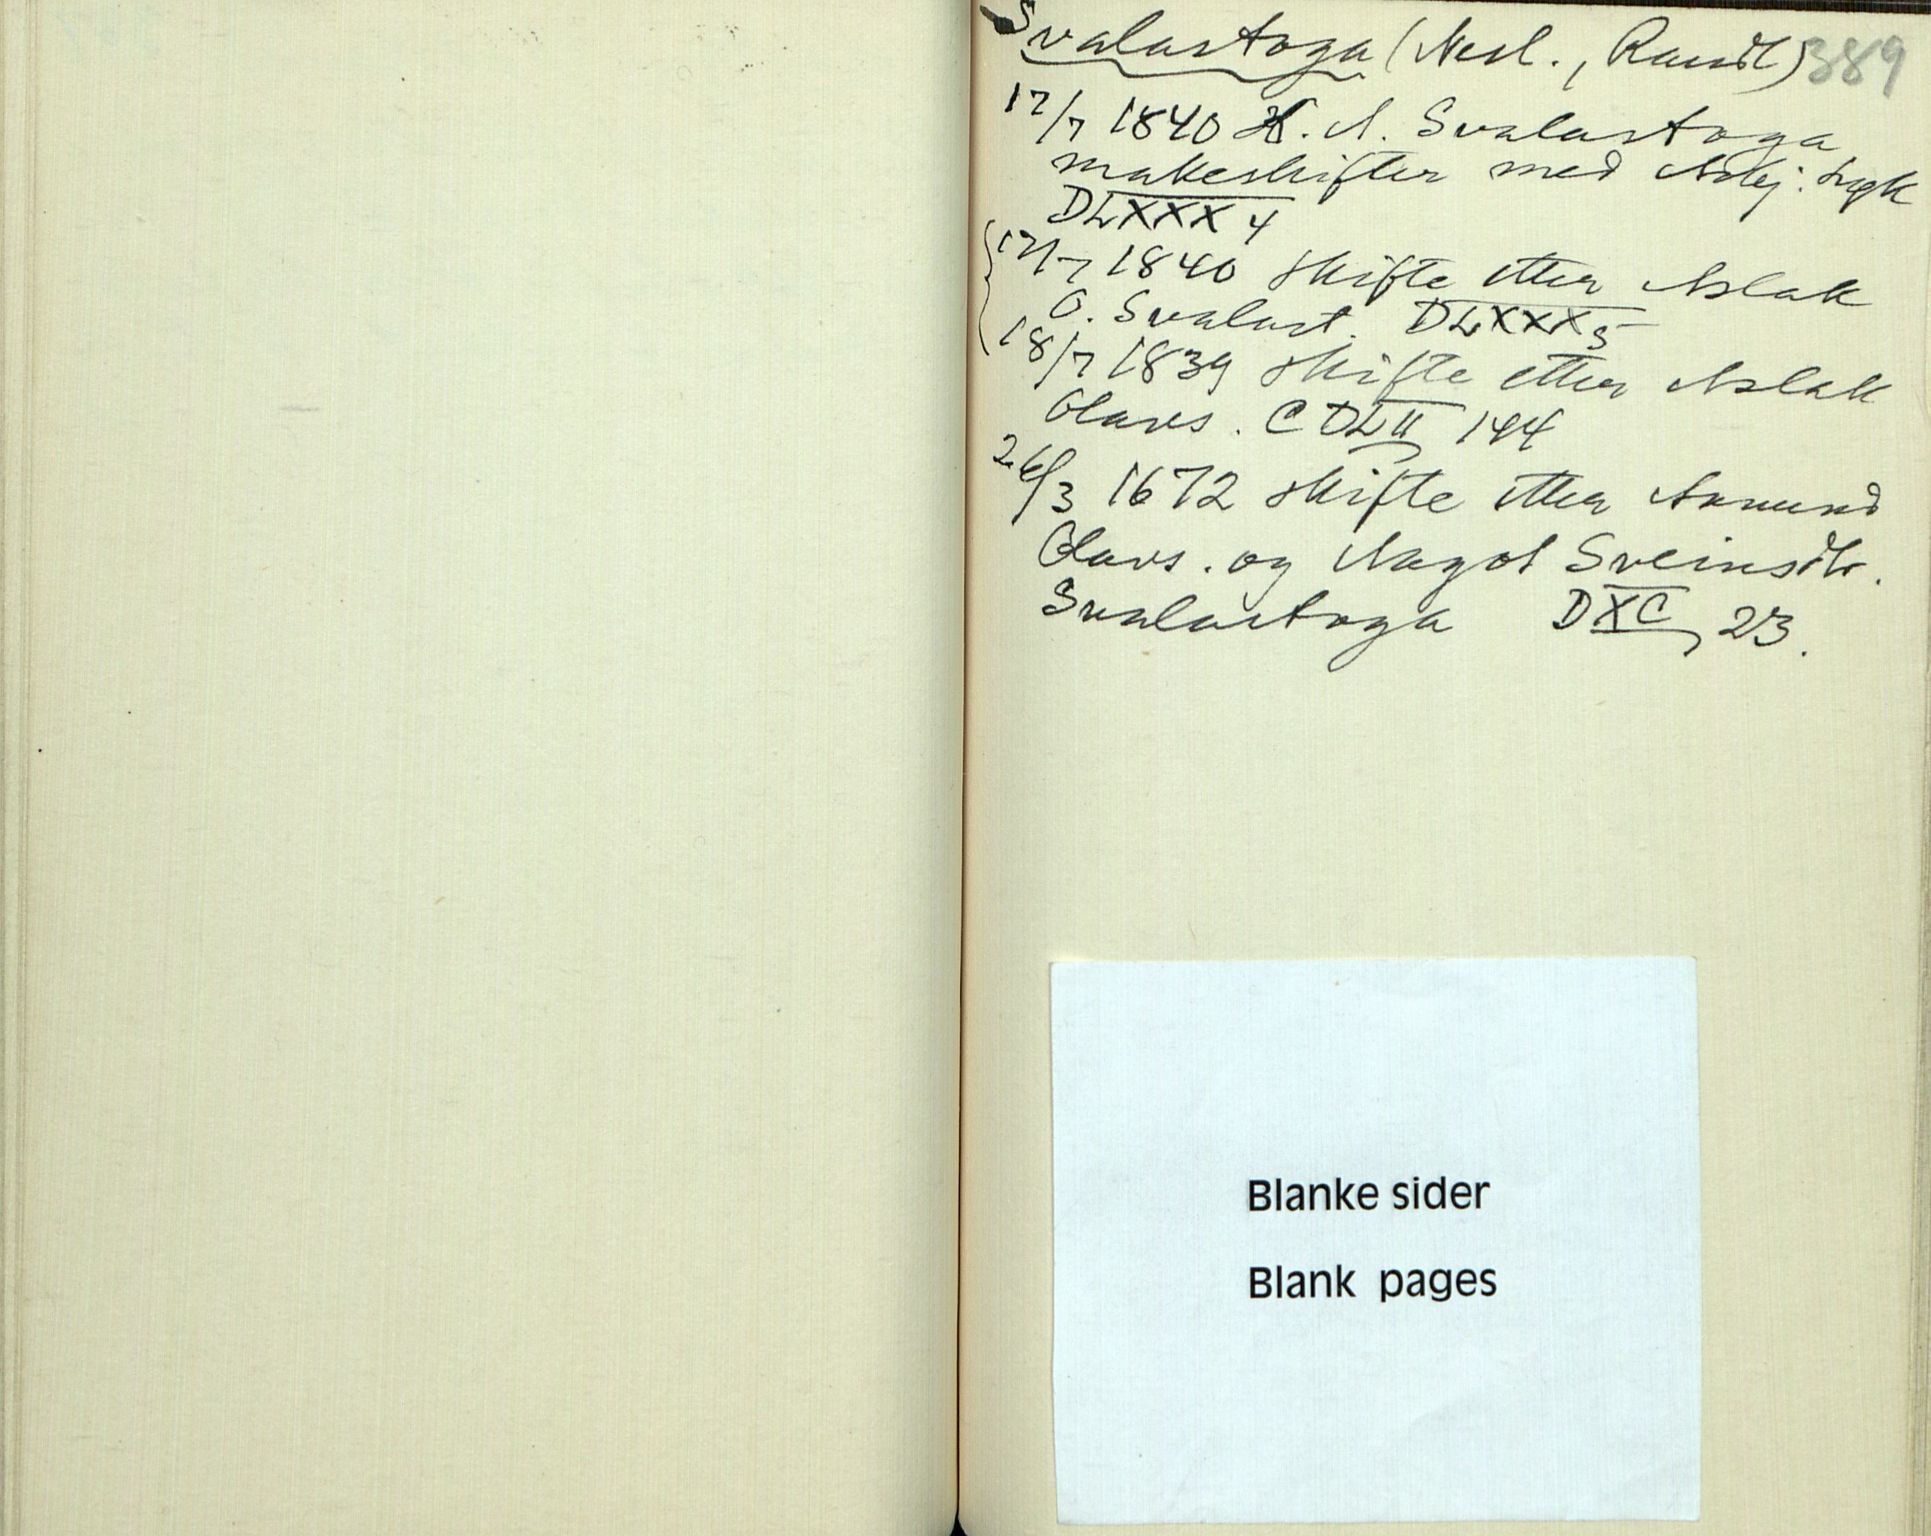 Svalastoga (Nesl., Raudl) 389
17/7 1840 H. A. Svalastoga
makeskifter med
DLXXX 4
17/7 1840 skifte etter Aslak
O. Svalast. DLXXX 5
18/7 1839 skifte etter Aslak
Olavs. CDLII 144
26/3 1672 skifte etter Aamund
Olavs. og Aagot Sveinsdtr.
Svalastoga DXC, 23.
Blanke sider
Blank pages